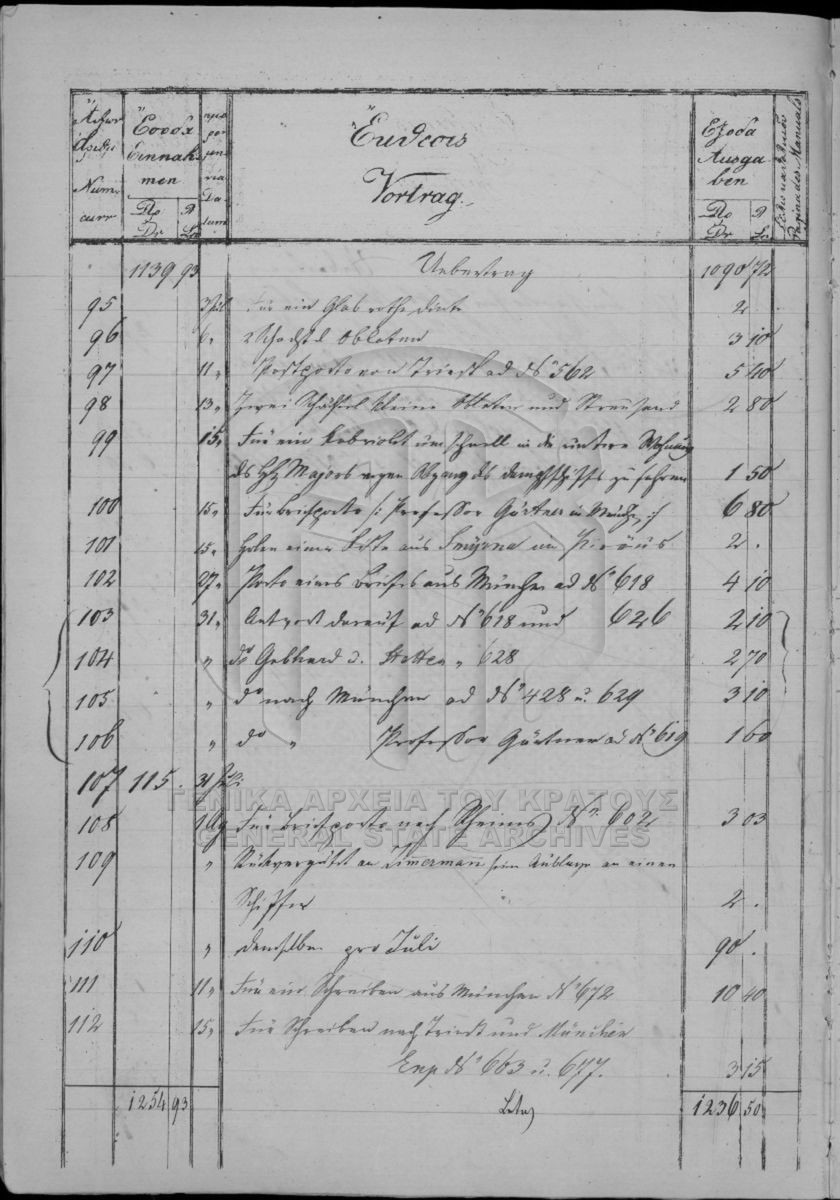 Έσοδα
Einnahmen
Έκθεσις
Vortrag
Έξοδα
Ausgaben
Pagina des Manuals
Δρ Λ
Dr
1139 93 Uebertrag 1090 72
95 3 Jul Für ein Glas rothe Dinte 2 .
96 6 " 2 Schachtel Oblaten 3 10
97 11 " Postporto von Triest ad No 562 5 40
98 13 " Zwei Schachtel kleine Oblaten und Streusand 2 80
99 15 " Für ein Kabriolet um schnell in die untere Wohnung
des Majors wegen Abgang des Dampfschiffs zu fahren 1 50
100 15 " Für Briefporto /: Professor Gärtner in :/ 6 80
101 15 " Holen einer Kiste aus Smyrna im Piräus 2 .
102 27 " Porto eines Briefes aus München ad No 618 4 10
103 31 " Antwort darauf ad No 618 und 626 2 10
104 " do Gebhard u. " 628 2 70
105 " do nach München ad No 428 u. 629 3 10
106 " do " Professor Gärtner ad No 619 1 60
107 115 . 31 Juli
108 1 Aug Für Briefporto nach No 602 3 03
109 " Rückvergütet an Zimmerman sein Auslage an einen
Schiffer 2 .
110 " demselben pro Juli 90 .
111 11 " Für ein Schreiben aus München No 672 10 40
112 15 " Für Schreiben nach Triest und München
Exp No 663 u. 677. 3 15
1254 93 Latus 1236 50
ΓΕΝΙΚΑ ΑΡΧΕΙΑ ΤΟΥ ΚΡΑΤΟΥΣ
GENERAL STATE ARCHIVES